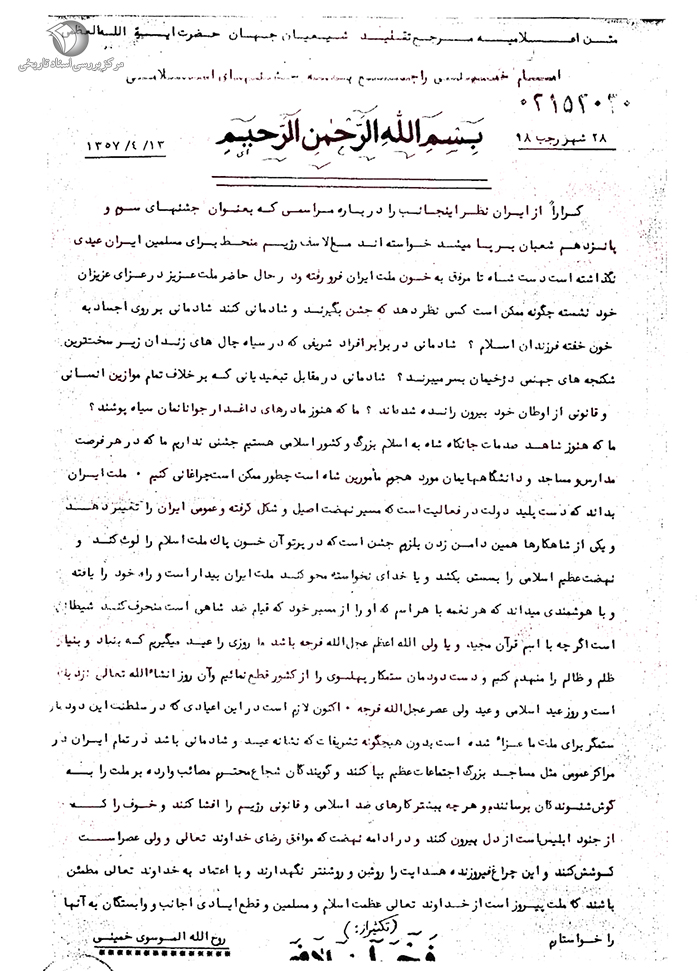 مرکز بررسی اسناد تاریخی
متن اعلامیه مرجع تقلید شیعیان جهان حضرت ایة الله العظمی
امام خمینی راجع به جشنهای اسلامی
۲۸ شهر رجب ۹۸
بِسْمِ اللهِ الرَّحْمنِ الرَّحیمِ
۱۳/ ۴/ ۱۳۵۷
کراراً از ایران نظر اینجانب را درباره مراسمی که بعنوان جشنهای سوم و
پانزدهم شعبان برپا میشد خواسته اند مع الاسف رژیم منحط برای مسلمین ایران عیدی
نگذاشته است دست شاه تا مرفق به خون ملت ایران فرو رفته ود رحال حاضر ملت عزیز درعزای عزیزان
خود نشسته چگونه ممکن است کسی نظر دهد که جشن بگیرند و شادمانی کنند شادمانی بر روی اجساد به
خون خفته فرزندان اسلام ؟ شادمانی در برابر افراد شریفی که در سیاه چال های زندان زیر سختترین
شکنجه های جهنمی دژخیمان بسر میبرند ؟ شادمانی در مقابل تبعیدیانی که بر خلاف تمام موازین انسانی
و قانونی از اوطان خود بیرون رانده شده اند ؟ ما که هنوز مادرهای داغدار جوانانمان سیاه پوشند ؟
ما که هنوز شاهد صدمات جانکاه شاه به اسلام بزرگ و کشور اسلامی هستیم جشنی نداریم ما که در هر فرصت
مدارس و مساجد و دانشگاههایمان مورد هجوم مأمورین شاه است چطور ممکن است چراغانی کنیم ۰ ملت ایران
بداند که دست پلید دولت در فعالیت است که مسیر نهضت اصیل و شکل گرفته وعمومی ایران را تغییر دهد
و یکی از شاهکارها همین دامن زدن بلزوم جشن است که در پرتو آن خون پاک ملت اسلام را لوث کند و
نهضت عظیم اسلامی را بسستی بکشد و یا خدای نخواسته محو کند ملت ایران بیدار است و راه خود را یافته
و با هوشمندی میداند که هر نغمه با هر اسم که او را از مسیر خود که قیام ضد شاهی است منحرف کند شیطانی
است اگر چه با اسم قرآن مجید و یا ولی الله اعظم عجل الله فرجه باشد ما روزی را عید میگیریم که بنیاد و بنیان
ظلم و ظالم را منهدم کنیم و دست دودمان ستمکار پهلوی را از کشور قطع نمائیم وآن روز انشاءالله تعالی نزدیک
است و روز عید اسلامی و عید ولی عصر عجل الله فرجه ۰ اکنون لازم است در این اعیادی که در سلطنت این دودمان
ستمگر برای ملت ما عزاء شده است بدون هیچگونه تشریفات که نشانه عید و شادمانی باشد در تمام ایران در
مراکز عمومی مثل مساجد بزرگ اجتماعات عظیم بپا کنند و گویندگان شجاع محترم مصائب وارده بر ملت را به
گوش شنوندگان برسانند و هر چه بیشتر کارهای ضد اسلامی و قانونی رژیم را افشا کنند و خوف را که
از جنود ابلیس است از دل بیرون کنند و در ادامه نهضت که موافق رضای خداوند تعالی و ولی عصر است
کوشش کنند و این چراغ فیروزنده هدایت را روشن و روشنتر نگهدارند و با اعتماد به خداوند تعالی مطمئن
باشند که ملت پیروز است از خداوند تعالی عظمت اسلام و مسلمین و قطع ایادی اجانب و وابستگان به آنها
را خواستارم
(تکثیر از:)
روح الله الموسوی خمینی